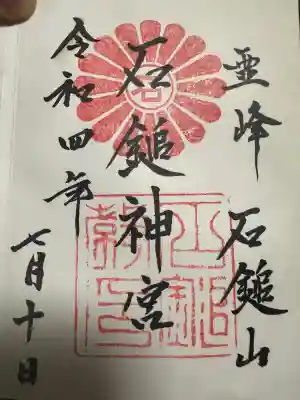 霊峰 石鎚山
石鎚神宮
令和四年
七月十日